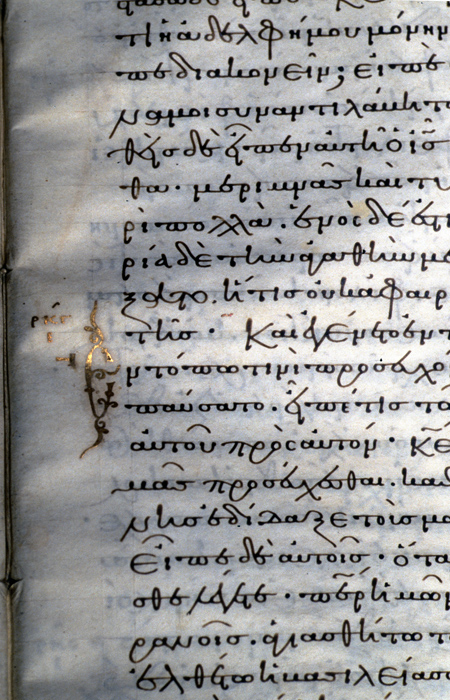 τι ἡ ἀδελφή μου μόνην
πε διακονεῖν; εἰπὲ
να μοι συναντιλάβητ
θεὶς δὲ εἶπεν αὐτῆ ὁ ι̅ς̅
θα· μεριμνᾶς καὶ τυ
ρὶ πολλὰ· ἑνὸς δέ ἐστι
ρία δὲ τὴν ἀγαθὴν με
ξατο· ἥτις οὐκ ἀφαιρ
τῆς· Καὶ ἐγένετο ἐν τ
ν τόπω τινὶ προσευχό
παύσατο· εἶπέ τις τῶ
αὐτοῦ πρὸς αὐτόν· κ̅ε̅
μᾶς προσεύχεσθαι· καθ
νης ἐδίδαξε τοὺς μα
Εἶπε δὲ αὐτοῖς· ὅτα
σθε λέγετε· π̅ε̅ρ̅ ἡμῶν
ρανοῖς· ἁγιασθήτω τ
ἐλθέτω ἡ βασιλεία σ